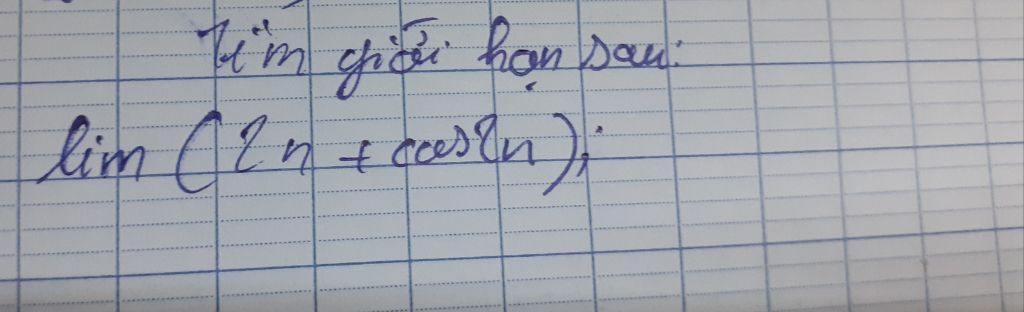 Tìm giới hạn sau:
lim (2n + cos2n);